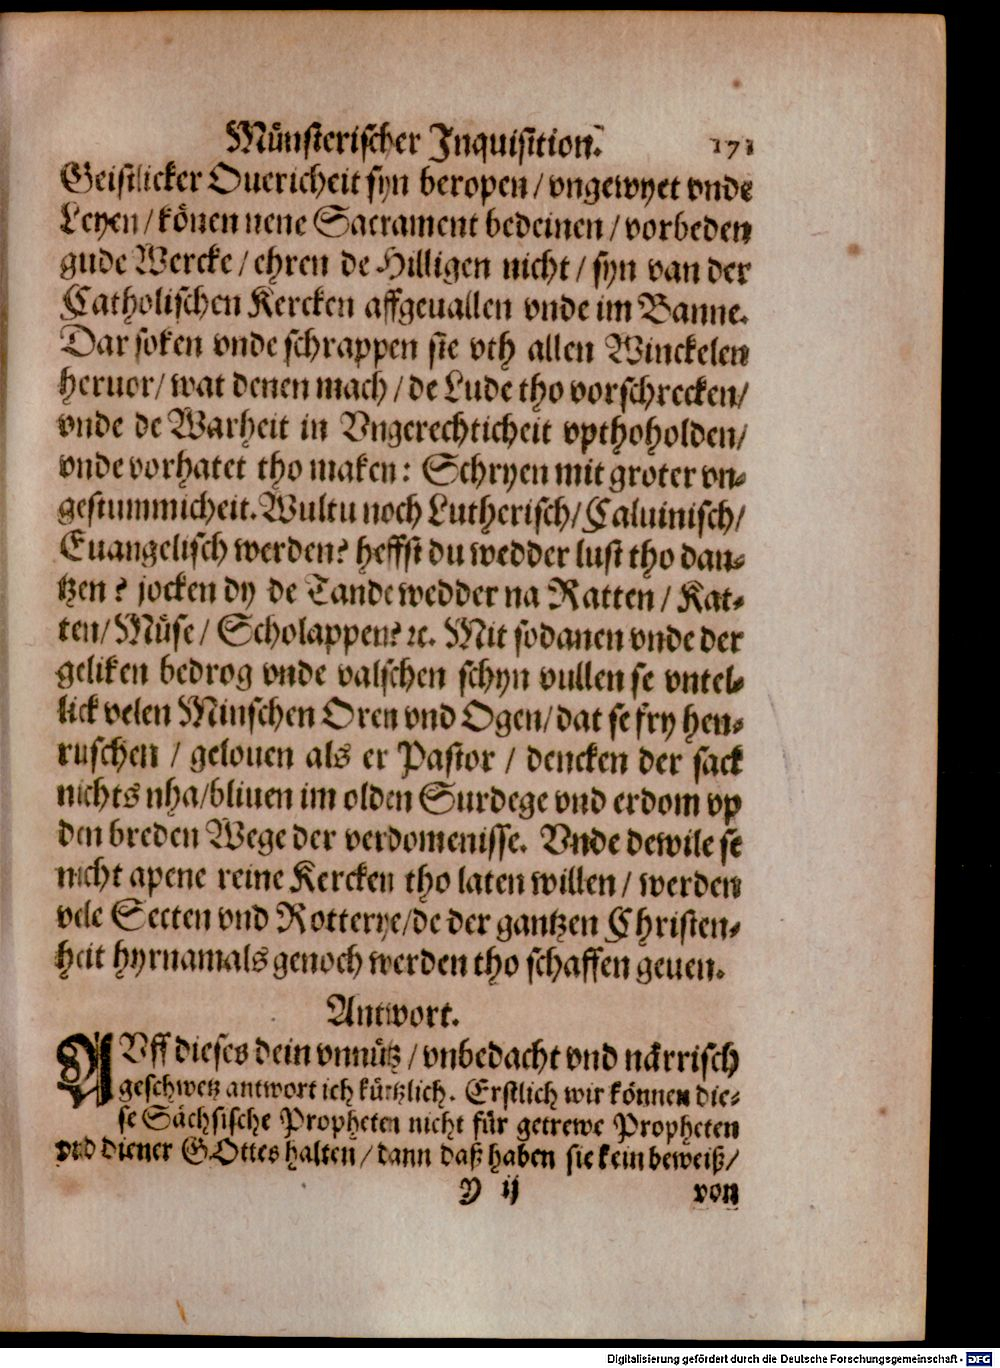 Münsterischer Inquisition. 171
Geistlicker Ouericheit syn beropen / vngewyet vnde
Leyen / könen nene Sacrament bedeinen / vorbeden
gude Wercke / ehren de Hilligen nicht / syn van der
Catholischen Kercken affgeuallen vnde im Banne.
Dar soken vnde schrappen sie vth allen Winckelen
heruor / wat denen mach / de Lude tho vorschrecken /
vnde de Warheit in Vngerechticheit vpthoholden /
vnde vorhatet tho maken: Schryen mit groter vn-
gestummicheit. Wultu noch Lutherisch / Caluinisch /
Euangelisch werden? heffst du wedder lust tho dan-
tzen? jocken dy de Tande wedder na Ratten / Kat-
ten / Müse / Scholappen? ꝛc. Mit sodanen vnde der
geliken bedrog vnde valschen schyn vullen se vntel-
lick velen Minschen Oren vnd Ogen / dat se fry hen-
ruschen / gelouen als er Pastor / dencken der sack
nichts nha / bliuen im olden Surdege vnd erdom vp
den breden Wege der verdomenisse. Vnde dewile se
nicht apene reine Kercken tho laten willen / werden
vele Secten vnd Rotterye / de der gantzen Christen-
heit hyrnamals genoch werden tho schaffen geuen.
Antwort.
AVff dieses dein vnnütz / vnbedacht vnd närrisch
geschwetz antwort ich kürtzlich. Erstlich wir können die-
se Sächsische Propheten nicht für getrewe Propheten
vnd diener GOttes halten / dann daß haben sie kein beweiß /
Y ij von
Digitalisierung gefördert durch die Deutsche Forschungsgemeinschaft - DFG